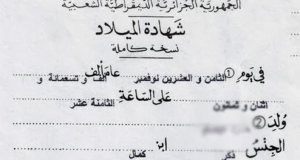 الجمهورية الجزائرية الديمقراطية الشعبية
شهادة الميلاد
نسخة كاملة
في يوم (1) الثامن و العشرين نوفمبر عام ألف و تسعمائة و
اثنان و ثمانون على الساعة الثامنة عشر
ولد (2)
الجنس ذكر ابن كمال